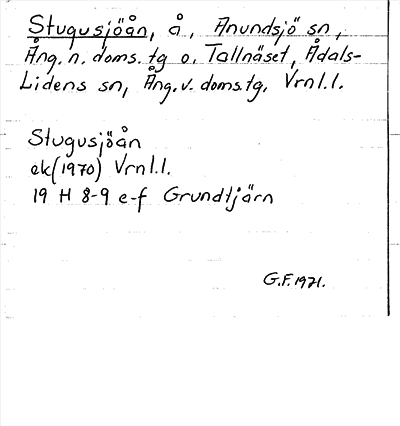 Stugusjöån, å, Anundsjö sn,
Ång. n. doms. tg o. Tallnäset, Ådals-
Lidens sn, Ång. v. doms. tg, Vrnl.l.
Stugusjöån
ek(1970) Vrnl.l.
19 H 8-9 e-f Grundtjärn
G.F. 1971.